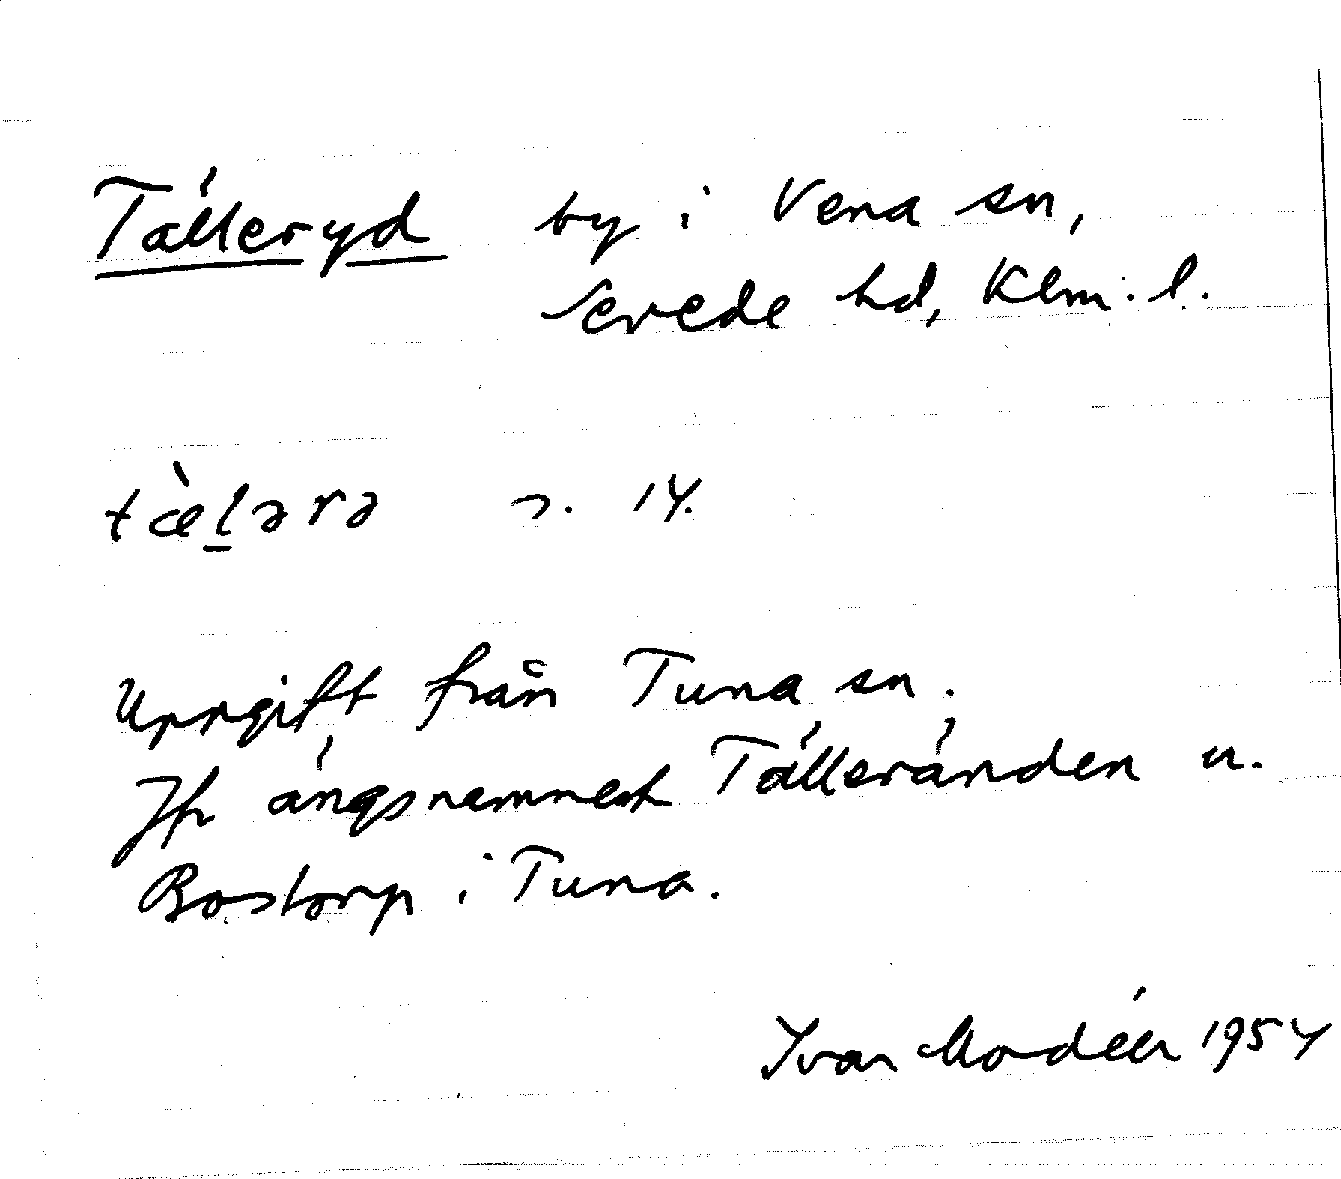 Tälleryd by i Vena sn,
Sevede hd, Klm. l.
tæ̀l̠ərə
Uppgift från Tuna sn.
Jfr ängsnamnet Tälleränden u.
Bostorp i Tuna.
Ivar Modéer 1954